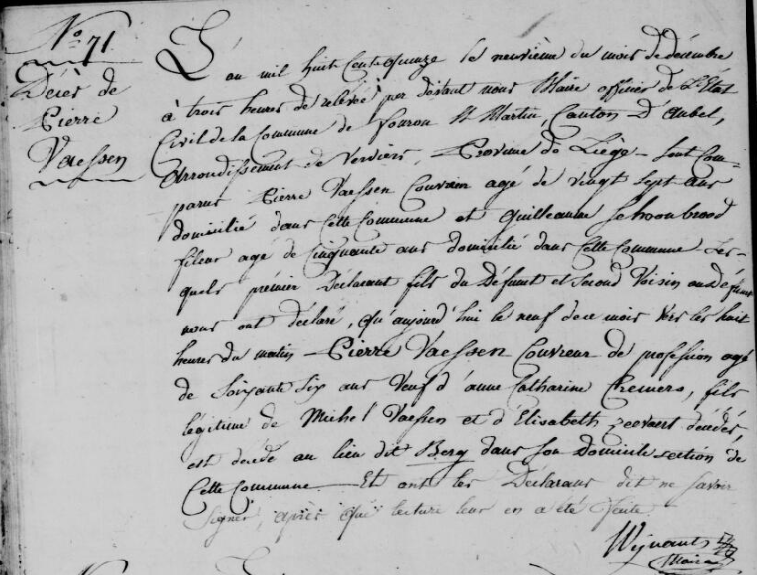 No. 71
Décès de
Pierre
Vaessen
L'an mil huit cent quinze le neuvième du mois de décembre
à trois heures de relevée, par devant nous Maire officier de l'Etat
Civil de la Commune de fouron St Martin, Canton D'aubel,
arrondissement de Verviers, Province de Liège sont Com-
parus Pierre Vaessen Couvrain agé de vingt sept ans
domicilié dans Cette Commune et Guilleaume Schoonbrood
fileur agé de Cinquante ans domicilié dans Cette Commune Les-
quels prémier Déclarant fils du Défunt et second Voisin au Défunt
nous ont déclaré, qu'aujourd'hui le neuf dece mois vers les huit
heures du matin Pierre Vaessen Couvreur de profession agé
de Soixante Six ans Veuf d'anne Catharine Cremers, fils
légitime de Michel Vaessen et d'Elisabeth décédés,
est décédé au lieu dit Berg dans son Domicile section de
Cette Commune Et ont les Déclarans dit ne savoir
signer, après qu' lecture leur en a été faite
Wynants
Maire